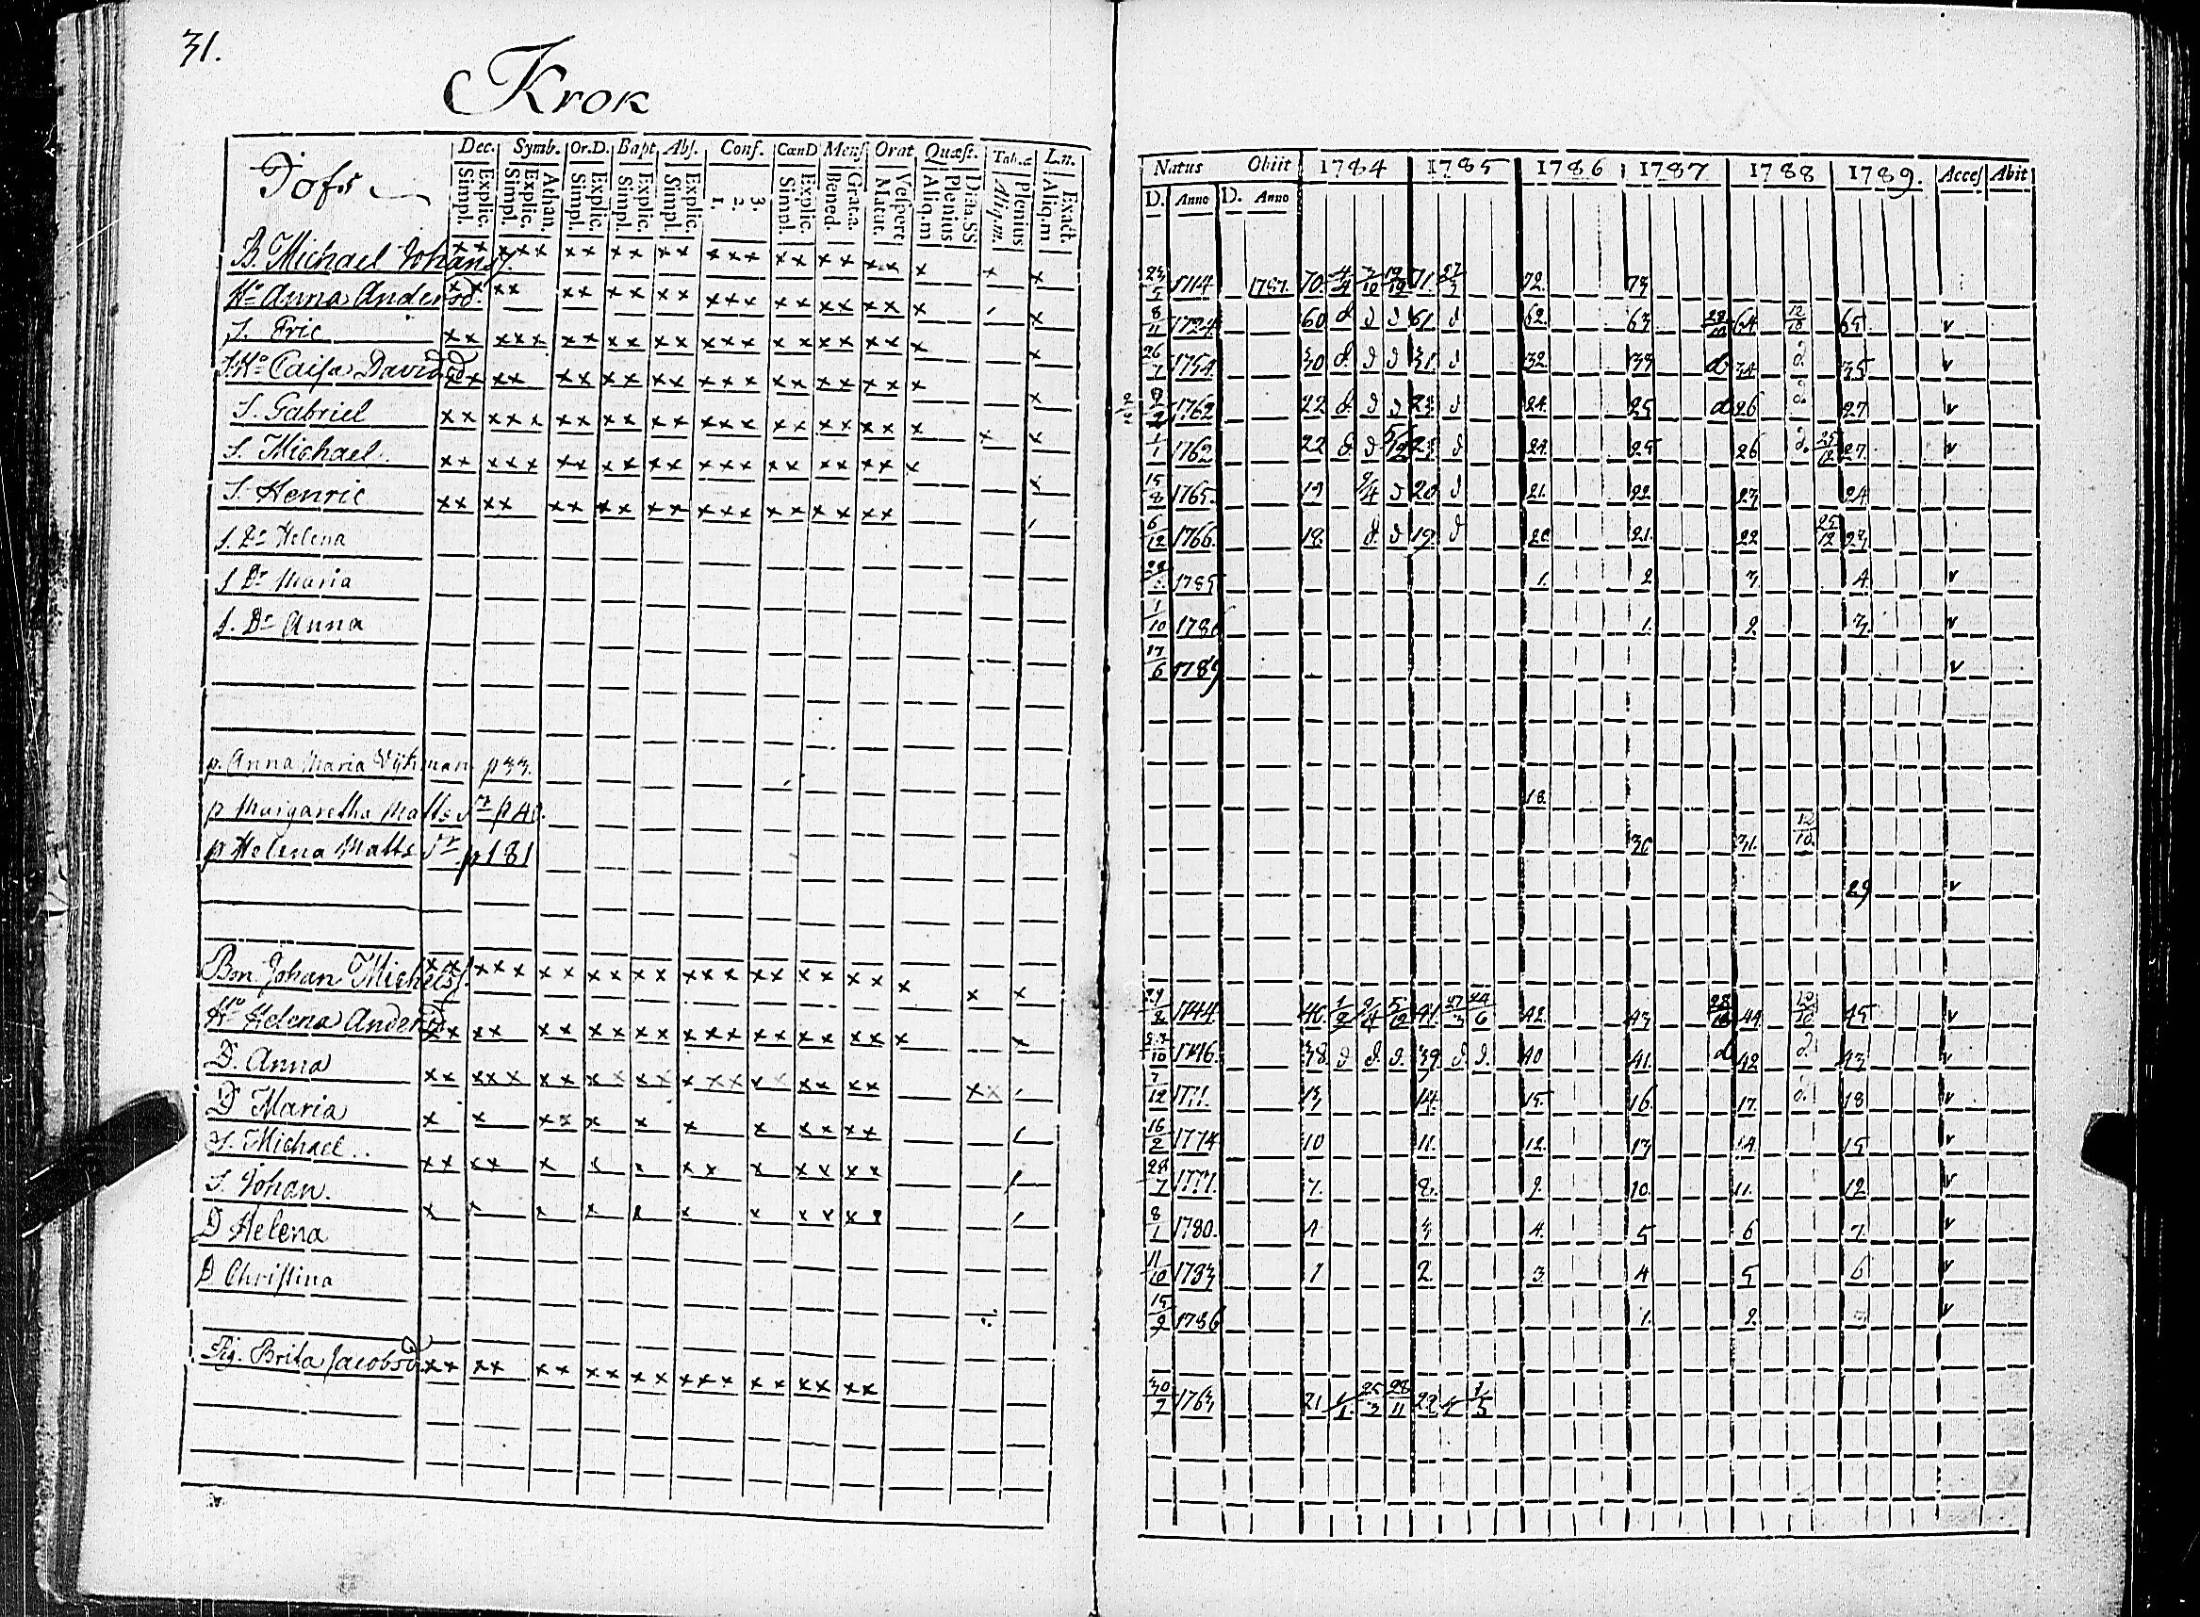 31.
Krok
Dec. Symb. Or.D. Bapt Abs. Conf. CœnD Mens Orat Quæst. Tab.æ L.n.
Jofs
Explic. Simpl. Athan. Explic. Simpl. Explic. Simpl. Explic. Simpl. Explic. Simpl. 3. 2. 1. Explic. Simpl. Grat.a. Bened. Vespert. Matut. Dicta.SS Plenius Aliq.m Plenius Aliq.m. Exact. Aliq.m
B. Michael Johanss.
Ho Anna Andersd.
S. Eric
SHo Caisa Davidsd
S. Gabriel
S. Michael.
S. Henric
S. Dr Helena
S Dr Maria
S. Dr Anna
p. Anna Maria p 33.
p Margaretha Matts Dr p 40.
p Helena Matts Dr. p 181
Bon Johan Michelss.
Ho Helena Andersd
D. Anna
D Maria
S. Michael..
S. Johan.
D Helena
D Christina
Pig. Brita Jacobsd.
Natus Obiit 1784 1785 1786 1787 1788 1789. Acces Abit
D. Anno D. Anno
23/5 1714 1787. 70. 71. 27/3 72. 73
8/11 1724 60 d d d 61. d 62. 63 28/10 64 12/10 65 v
26/7 1754 30 d. d d 31. d 32. 33 d 34 d 35 v
1762 22 d. d d 23. d 24. 25 d 26 d 27. v
1/1 1762 22 d d 23 d 24. 25 26 d. 25/12 27. v
15/8 1765. 19 9/4 d 20. d 21. 22 23 24
6/12 1766. 18. d. d 19. d 20 21. 22 25/12 23
1785 1. 2 3. 4. v
1/10 1786 1. 2. 3. v
17/6 1789 v
18.
30 31. 12/10.
29 v
1744 40. 41. 42. 43 28/10 44 45 v
1746. 38. d d. d. 39. d d. 40 41. d 42 d. 43 v
7/12 1771. 13 14. 15. 16. 17. d. 18 v
16/2 1774 10 11. 12. 13 14. 15 v
28/7 1777. 7. 8. 9. 10. 11. 12 v
8/1 1780. 4. 5 6 7. v
11/10 1783 1 2. 3. 4 5 6 v
15/9 1786 1. 2. v
30/7 1763 21 25/3 28/11 22